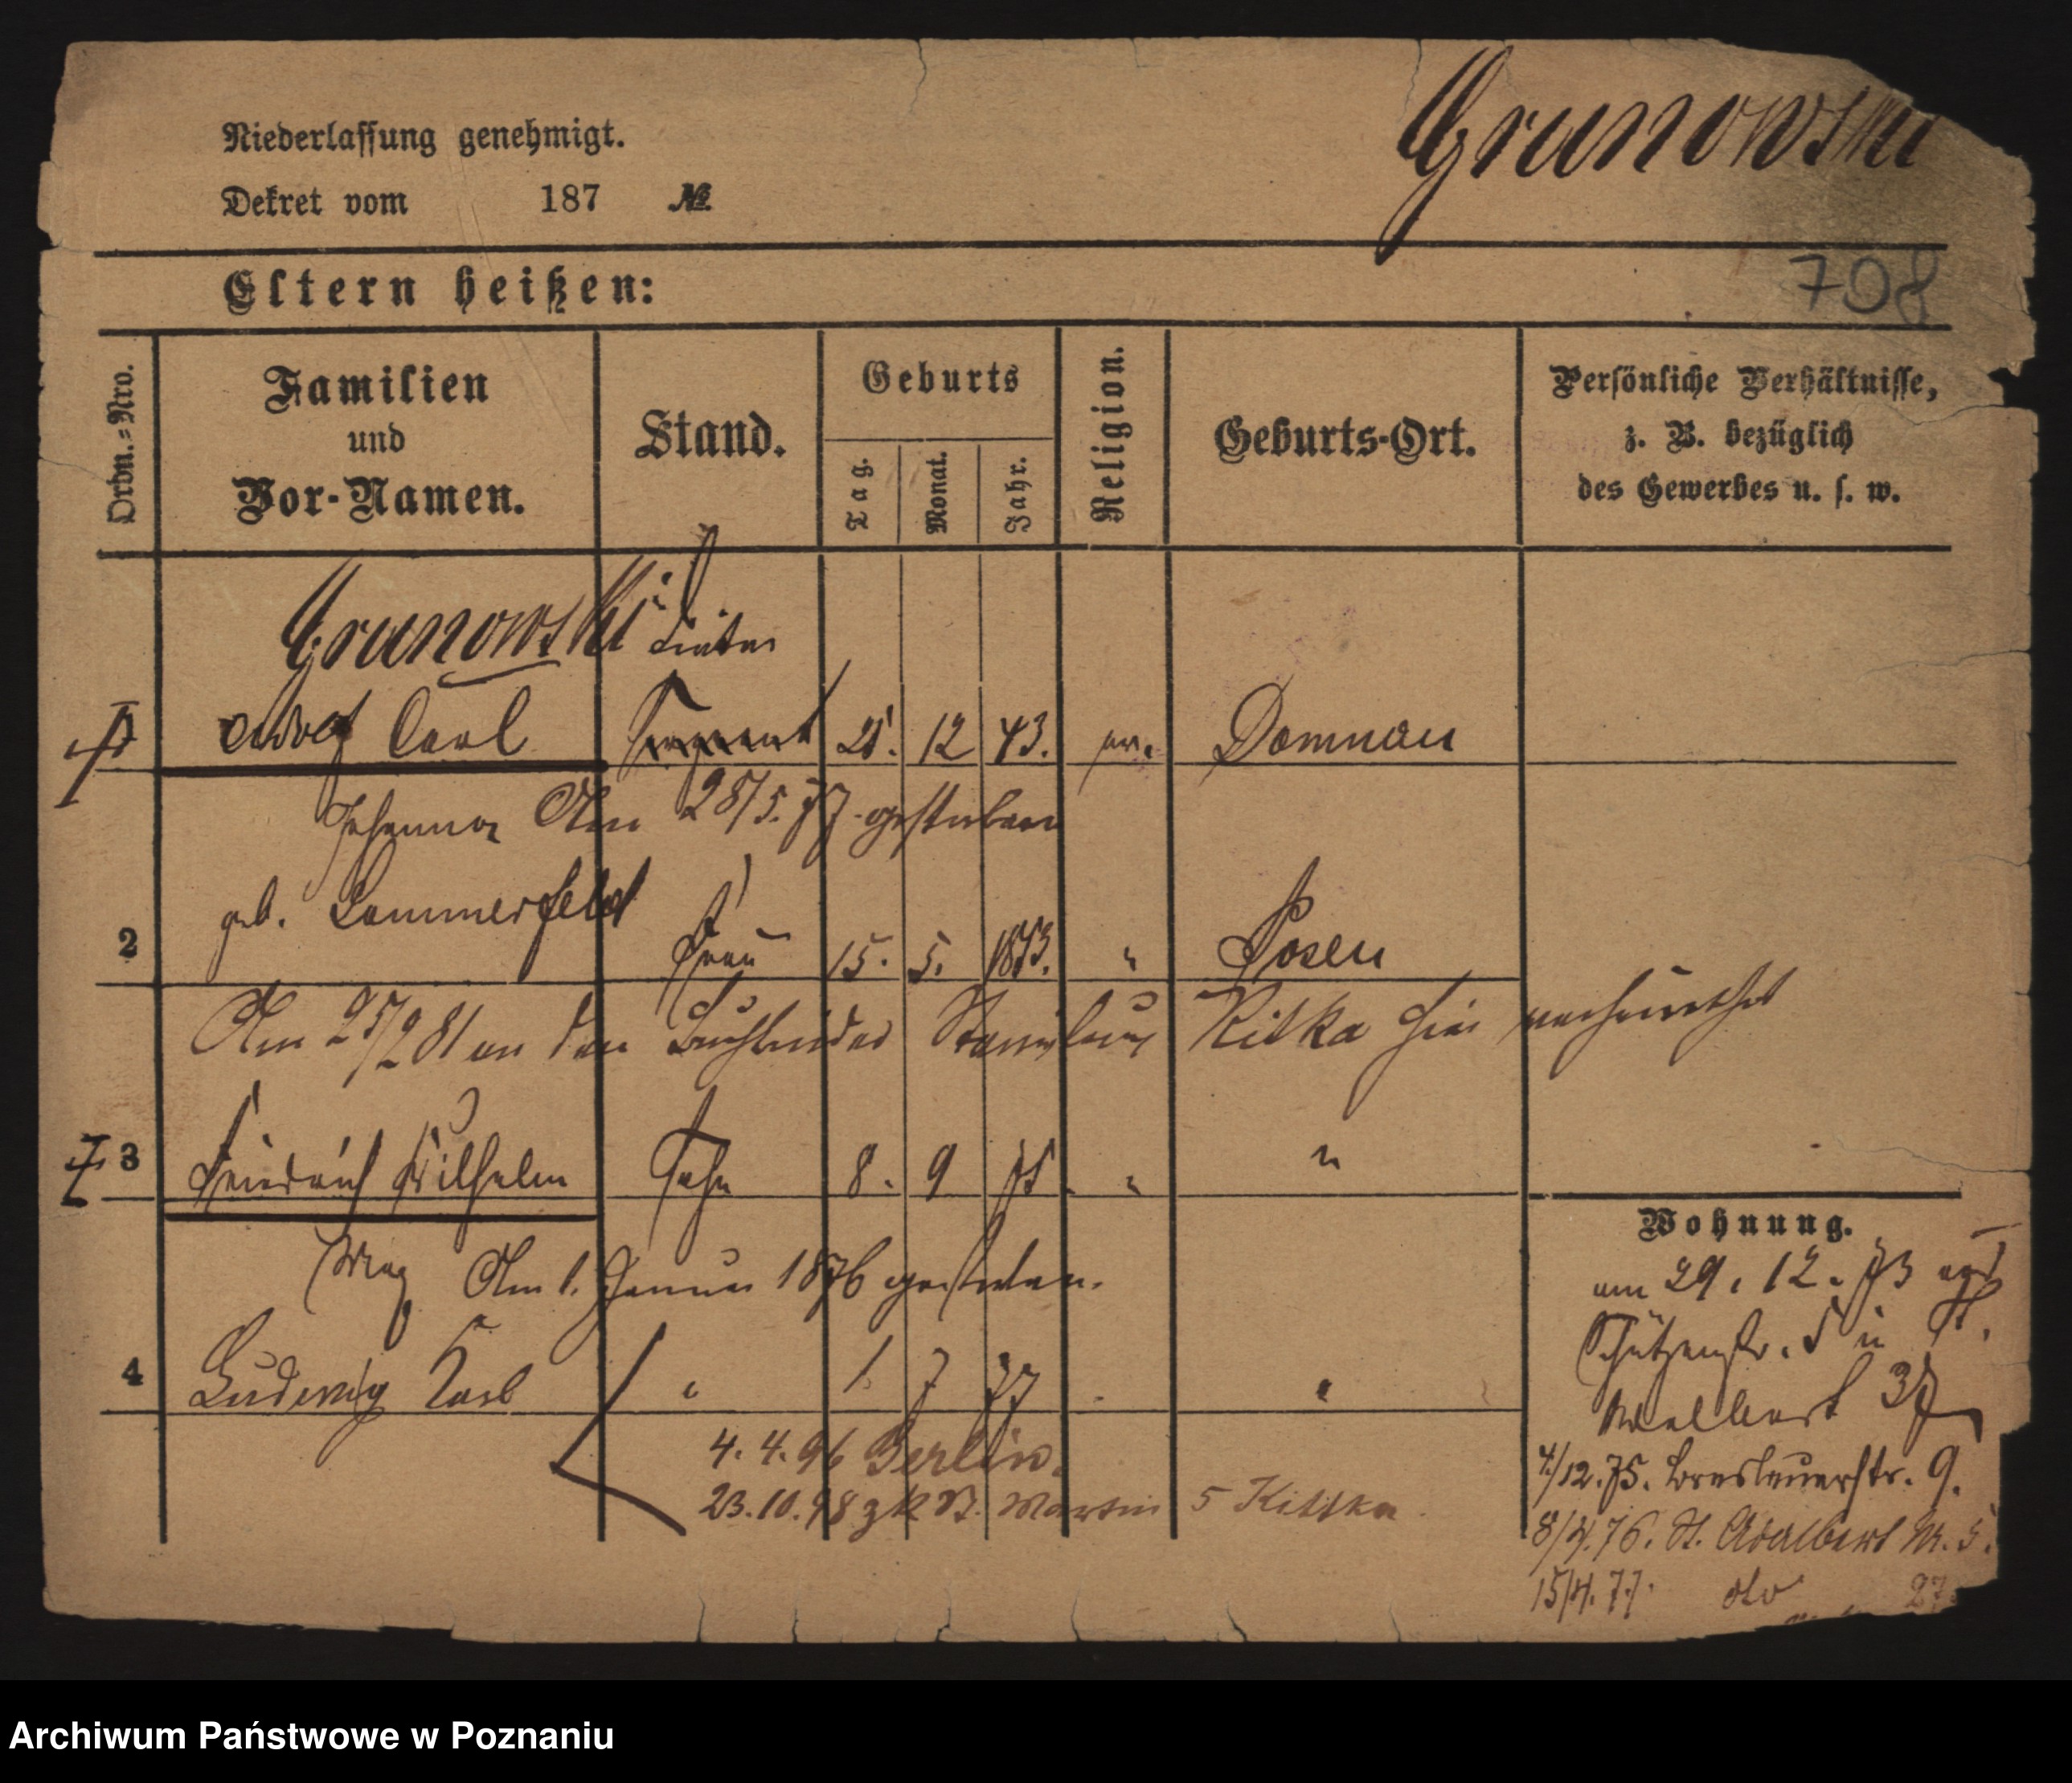 Grunowski
Niederlassung genehmigt.
Dekret vom 187 №
708
Eltern heißen:
Ordn.=Nro.
Familien
und
Vor-Namen.
Stand.
Geburts
Tag.
Monat.
Jahr.
Religion.
Geburts-Ort.
Persönliche Verhältnisse,
z. B. bezüglich
des Gewerbes u. s. w.
Grunowski
Adolf Carl Sergeant 21. 12 43. ev. Domnau
Johanna Am 28/5. 77 gestorben
geb. Sommerfeld
2 Frau 15. 5. 1853. " Posen
Am 25/2 81 an den Buchbinder Stanislaus Kitka hier verheirathet
3 Friedrich Wilhelm Sohn 8. 9 75 " "
Max Am 1. Januar 1876 gestorben.
4 Ludwig Karl " 1. 7 77 "
4. 4. 96 Berlin.
23. 10. 98 zk St. Martin 5 Kittka
Wohnung.
am 29. 12. 73
Schützenstr. St.
Adalbert 37
4/12. 75. Breslauerstr. 9.
8/4. 76. St. Adalbert N. 5.
15/4. 77. dto 27
Archiwum Państwowe w Poznaniu